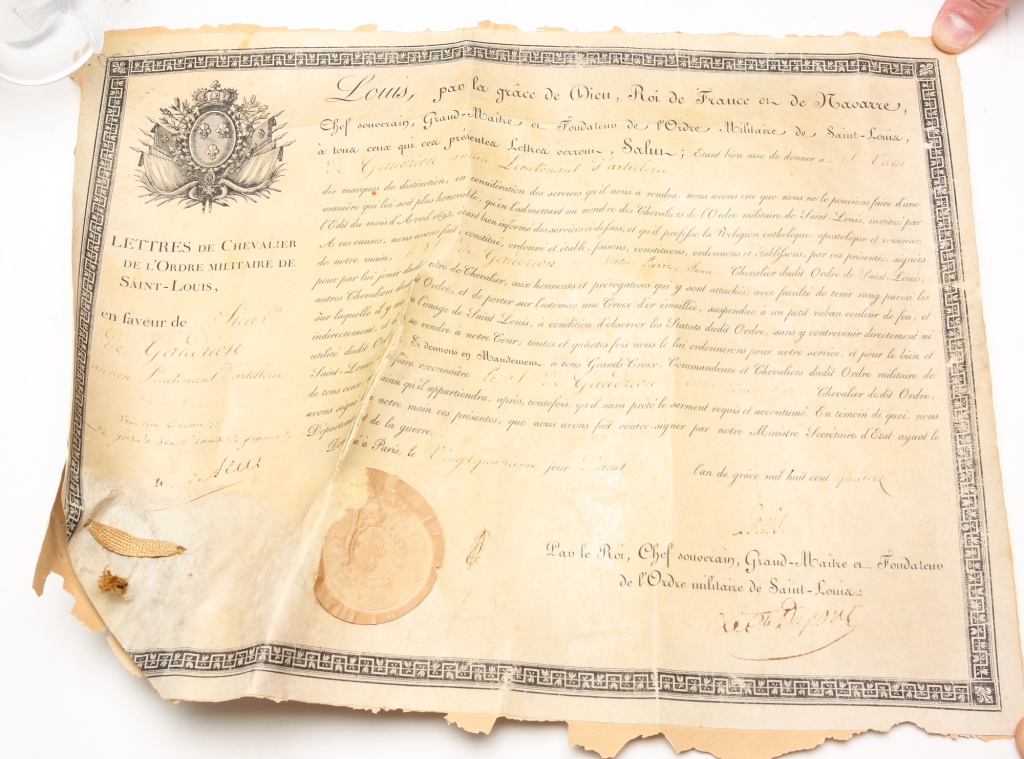 Louis, par la grâce de Dieu, Roi de France et de Navarre,
Chef souverain, Grand-Maître et Fondateur de l'Ordre Militaire de Saint-Louis,
à tous ceux qui ces présentes Lettres verront, Salut; Étant bien aise de donner au S. Victor
de Gaudrion ancien Lieutenant d'artillerie
des marques de distinction, en considération des services qu'il nous a rendus, nous avons cru que nous ne le pouvions faire d'une
manière qui lui soit plus honorable, qu'en l'admettant au nombre des Chevaliers de l'Ordre militaire de Saint-Louis, institué par
l'Édit du mois d'Avril 1693, étant bien informé des services ci-dessus, et qu'il professe la Religion catholique, apostolique et romaine.
A ces causes, nous avons fait, constitué, ordonné et établi, faisons, constituons, ordonnons et établissons, par ces présentes, signées
de notre main, de Gaudrion Chevalier dudit Ordre de Saint-Louis,
pour par lui jouir dudit titre de Chevalier, aux honneurs et prérogatives qui y sont attachés, avec faculté de tenir rang parmi les
autres Chevaliers dudit Ordre, et de porter sur l'estomac une Croix d'or émaillée, suspendue à un petit ruban couleur de feu, et
sur laquelle il y a l'image de Saint Louis, à condition d'observer les Statuts dudit Ordre, sans y contrevenir directement ni
indirectement, et de se rendre à notre Cour, toutes et quantes fois nous le lui ordonnerons pour notre service, et pour le bien et
utilité dudit Ordre. Si donnons en Mandement à tous Grands Croix, Commandeurs et Chevaliers dudit Ordre militaire de
Saint-Louis, faire reconnaître le S. de Gaudrion Chevalier dudit Ordre,
de tous ceux ainsi qu'il appartiendra, après, toutefois, qu'il aura prêté le serment requis et accoutumé. En témoin de quoi, nous
avons signé de notre main ces présentes, que nous avons fait contre-signer par notre Ministre Secrétaire d'État ayant le
Département de la guerre.
Donné à Paris, le Vingt quatrième jour d'aout l'an de grâce mil huit cent quatorze
Louis
Par le Roi, Chef souverain, Grand-Maître et Fondateur
de l'Ordre militaire de Saint-Louis:
Le Cte Dupont
LETTRES DE CHEVALIER
DE L'ORDRE MILITAIRE DE
SAINT-LOUIS,
en faveur de
de Gaudrion
ancien Lieutenant d'artillerie